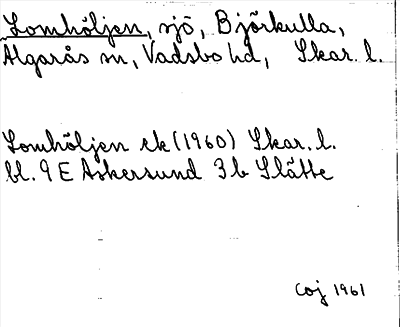 Lomhöljen, sjö, Björkulla,
Älgarås sn, Vadsbo hd, Skar. l.
Lomhöljen ek (1960) Skar. l.
bl. 9 E Askersund 3 b Slätte
Coj 1961